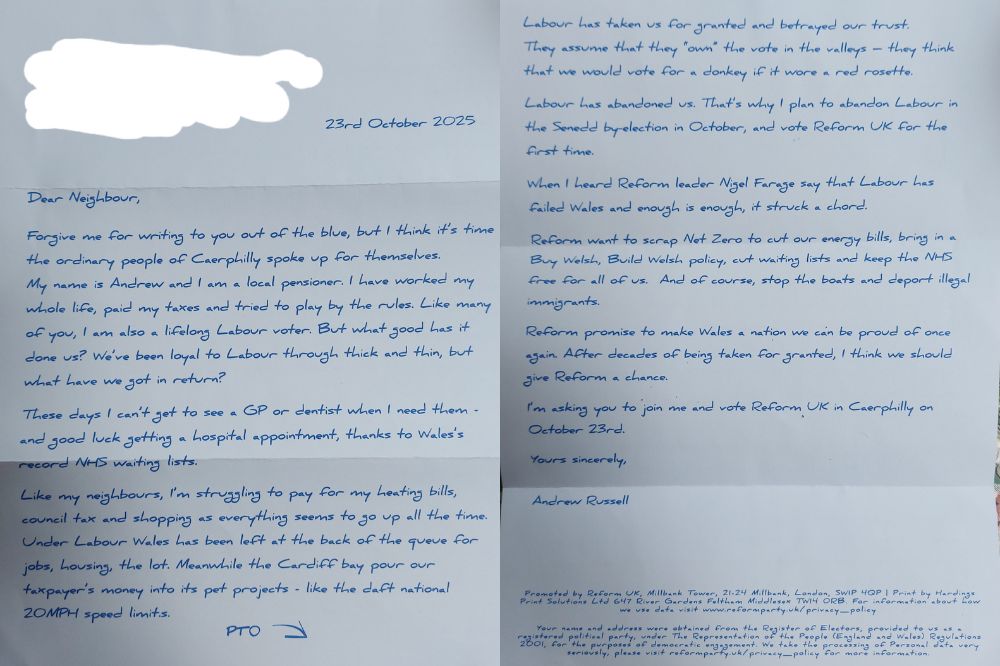 23rd October 2025
Dear Neighbour,
Forgive me for writing to you out of the blue, but I think it's time
the ordinary people of Caerphilly spoke up for themselves.
My name is Andrew and I am a local pensioner. I have worked my
whole life, paid my taxes and tried to play by the rules. Like many
of you, I am also a lifelong Labour voter. But what good has it
done us? We've been loyal to Labour through thick and thin, but
what have we got in return?
These days I can't get to see a GP or dentist when I need them -
and good luck getting a hospital appointment, thanks to Wales's
record NHS waiting lists.
Like my neighbours, I'm struggling to pay for my heating bills,
council tax and shopping as everything seems to go up all the time.
Under Labour Wales has been left at the back of the queue for
jobs, housing, the lot. Meanwhile the Cardiff bay pour our
taxpayer's money into its pet projects - like the daft national
20MPH speed limits.
PTO
Labour has taken us for granted and betrayed our trust.
They assume that they "own" the vote in the valleys – they think
that we would vote for a donkey if it wore a red rosette.
Labour has abandoned us. That's why I plan to abandon Labour in
the Senedd by-election in October, and vote Reform UK for the
first time.
When I heard Reform leader Nigel Farage say that Labour has
failed Wales and enough is enough, it struck a chord.
Reform want to scrap Net Zero to cut our energy bills, bring in a
Buy Welsh, Build Welsh policy, cut waiting lists and keep the NHS
free for all of us. And of course, stop the boats and deport illegal
immigrants.
Reform promise to make Wales a nation we can be proud of once
again. After decades of being taken for granted, I think we should
give Reform a chance.
I'm asking you to join me and vote Reform UK in Caerphilly on
October 23rd.
Yours sincerely,
Andrew Russell
Promoted by Reform UK, Millbank Tower, 21-24 Millbank, London, SW1P 4QP | Print by Hardings
Print Solutions Ltd 647 River Gardens Feltham Middlesex TW14 0RB. For information about how
we use data visit www.reformparty.uk/privacy_policy
Your name and address were obtained from the Register of Electors, provided to us as a
registered political party, under The Representation of the People (England and Wales) Regulations
2001, for the purposes of democratic engagement. We take the processing of Personal data very
seriously, please visit reformparty.uk/privacy_policy for more information.